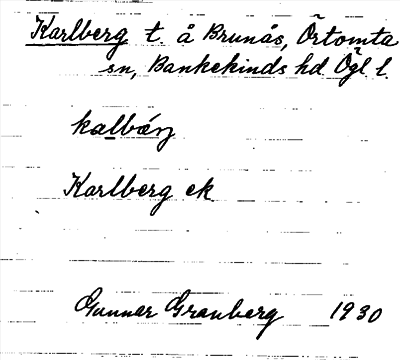 Karlberg t. å Brunås, Örtomta
sn, Bankekinds hd. Ögl l.
kalbærj
Karlberg ek
Gunnar Granberg 1930